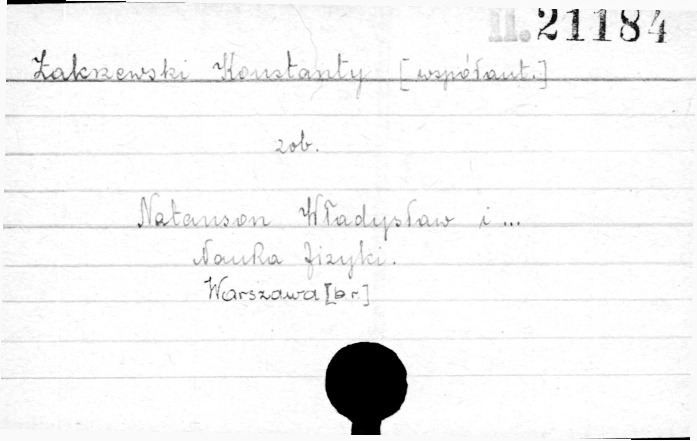 II. 21184
Zakrzewski Konstanty [współaut.]
zob.
Natanson Władysław i ...
Nauka fizyki.
Warszawa [b.r]